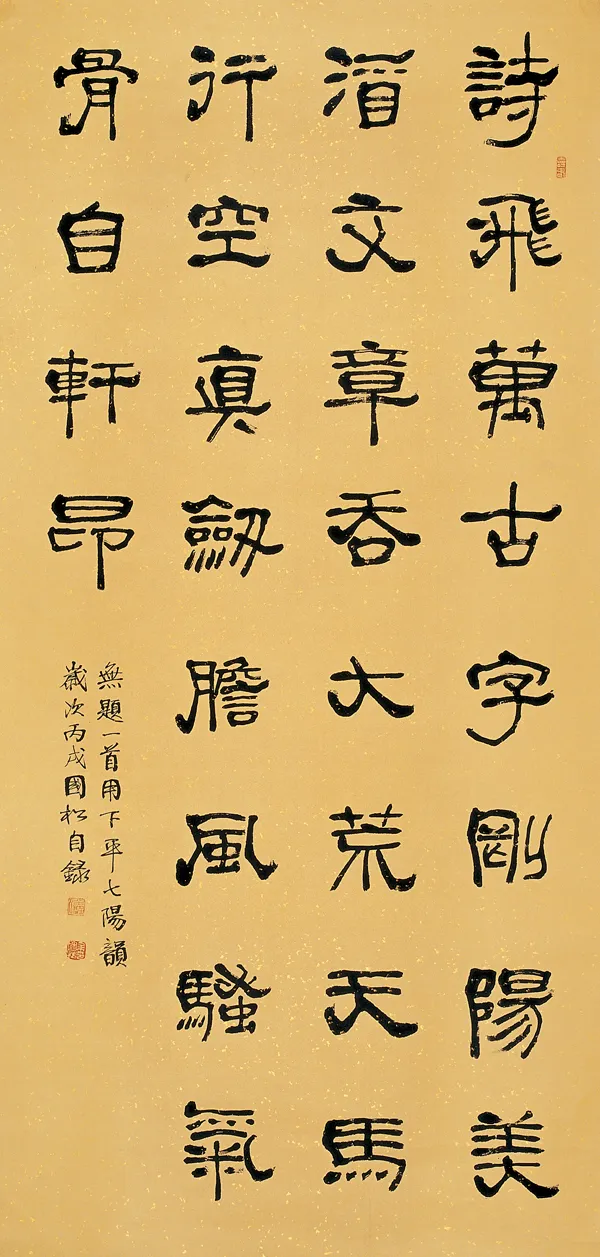 詩飛萬古字剛陽美
酒文章吞大荒天馬
行空眞劒膽風騷氣
骨自軒昂
無題一首用下平七陽韻
歲次丙戌國松自錄